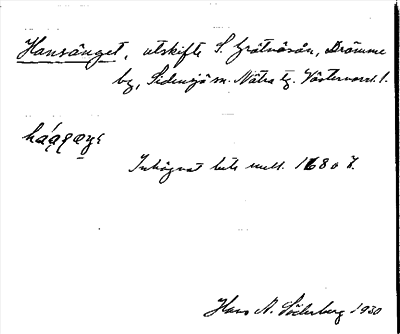 Hansänget, utskifte S. Gråtnåsån, Drömme
by, Sidensjö sn. Nätra tg. Västernorrl. l.
Inhägnat bete mell. 168 o 7.
Hans N. Söderberg 1930